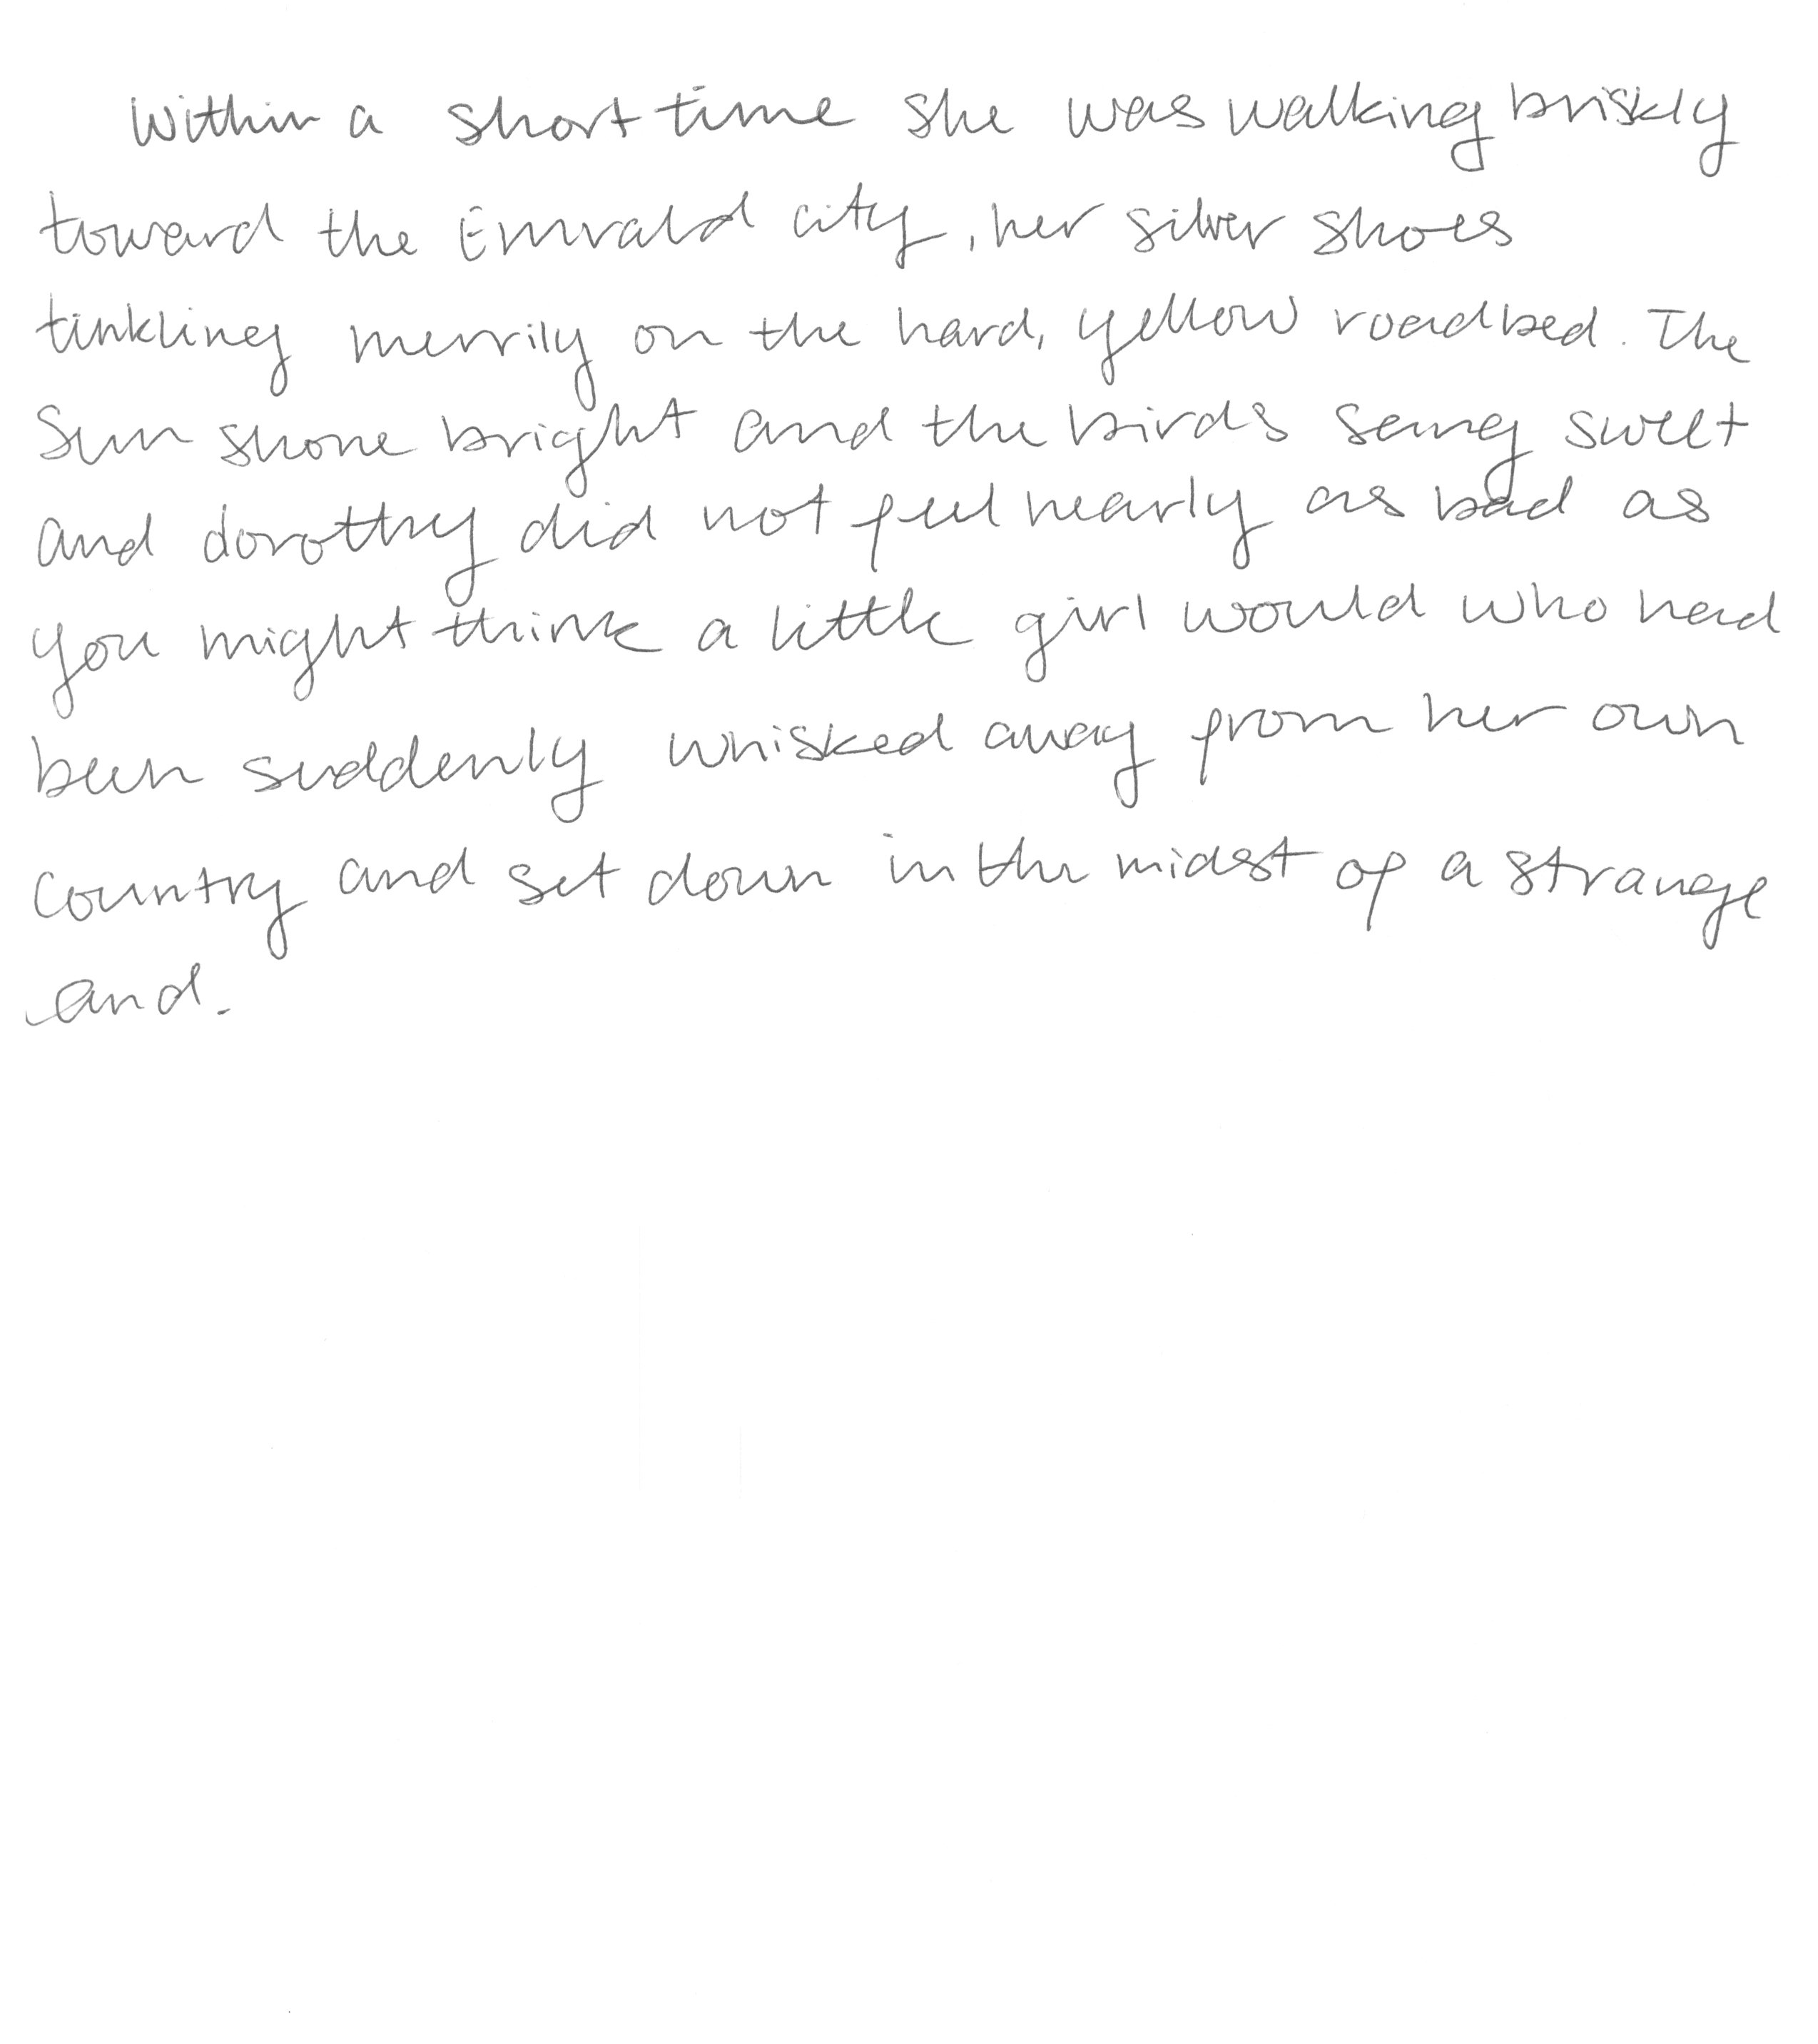 Within a short time she was walking briskly
toward the Emrald city, her silver shoes
tinkling merrily on the hard, yellow roadbed. The
Sun shone bright and the birds sang sweet
and dorothy did not feel nearly as bad as
you might think a little girl would who had
been suddenly whisked away from her own
country and set down in the midst of a strange
and.